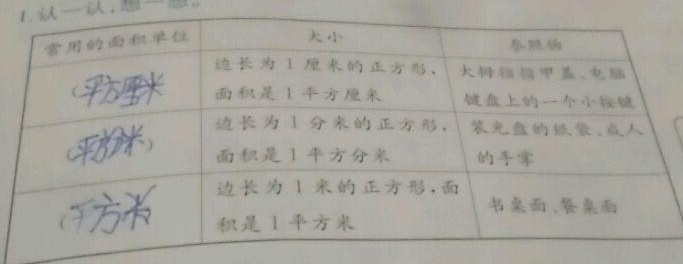 1.认一认,想一想。
常用的面积单位 大小 参照物
(平方厘米
边长为1厘米的正方形,
面积是1平方厘米
大拇指指甲盖、电脑
键盘上的一个小按键
(平方分米)
边长为1分米的正方形,
面积是1平方分米
装光盘的纸袋、成人
的手掌
(平方米)
边长为1米的正方形,面
积是1平方米
书桌面、餐桌面